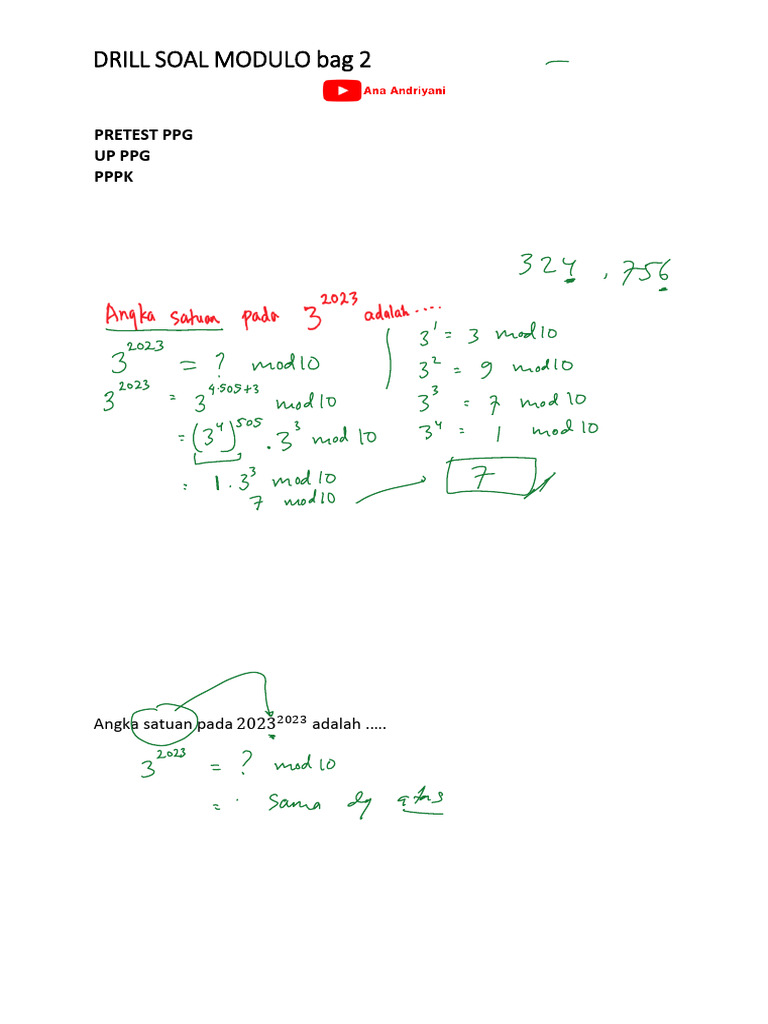 DRILL SOAL MODULO bag 2
Ana Andriyani
PRETEST PPG
UP PPG
PPPK
324 , 756
Angka satuan pada 3^2023 adalah ....
3^2023 = ? mod 10
3^2023 = 3^(4·505+3) mod 10
= (3^4)^505 . 3^3 mod 10
= 1 . 3^3 mod 10
7 mod 10
3^1 = 3 mod 10
3^2 = 9 mod 10
3^3 = 7 mod 10
3^4 = 1 mod 10
7
Angka satuan pada 2023^2023 adalah .....
3^2023 = ? mod 10
= sama dg atas